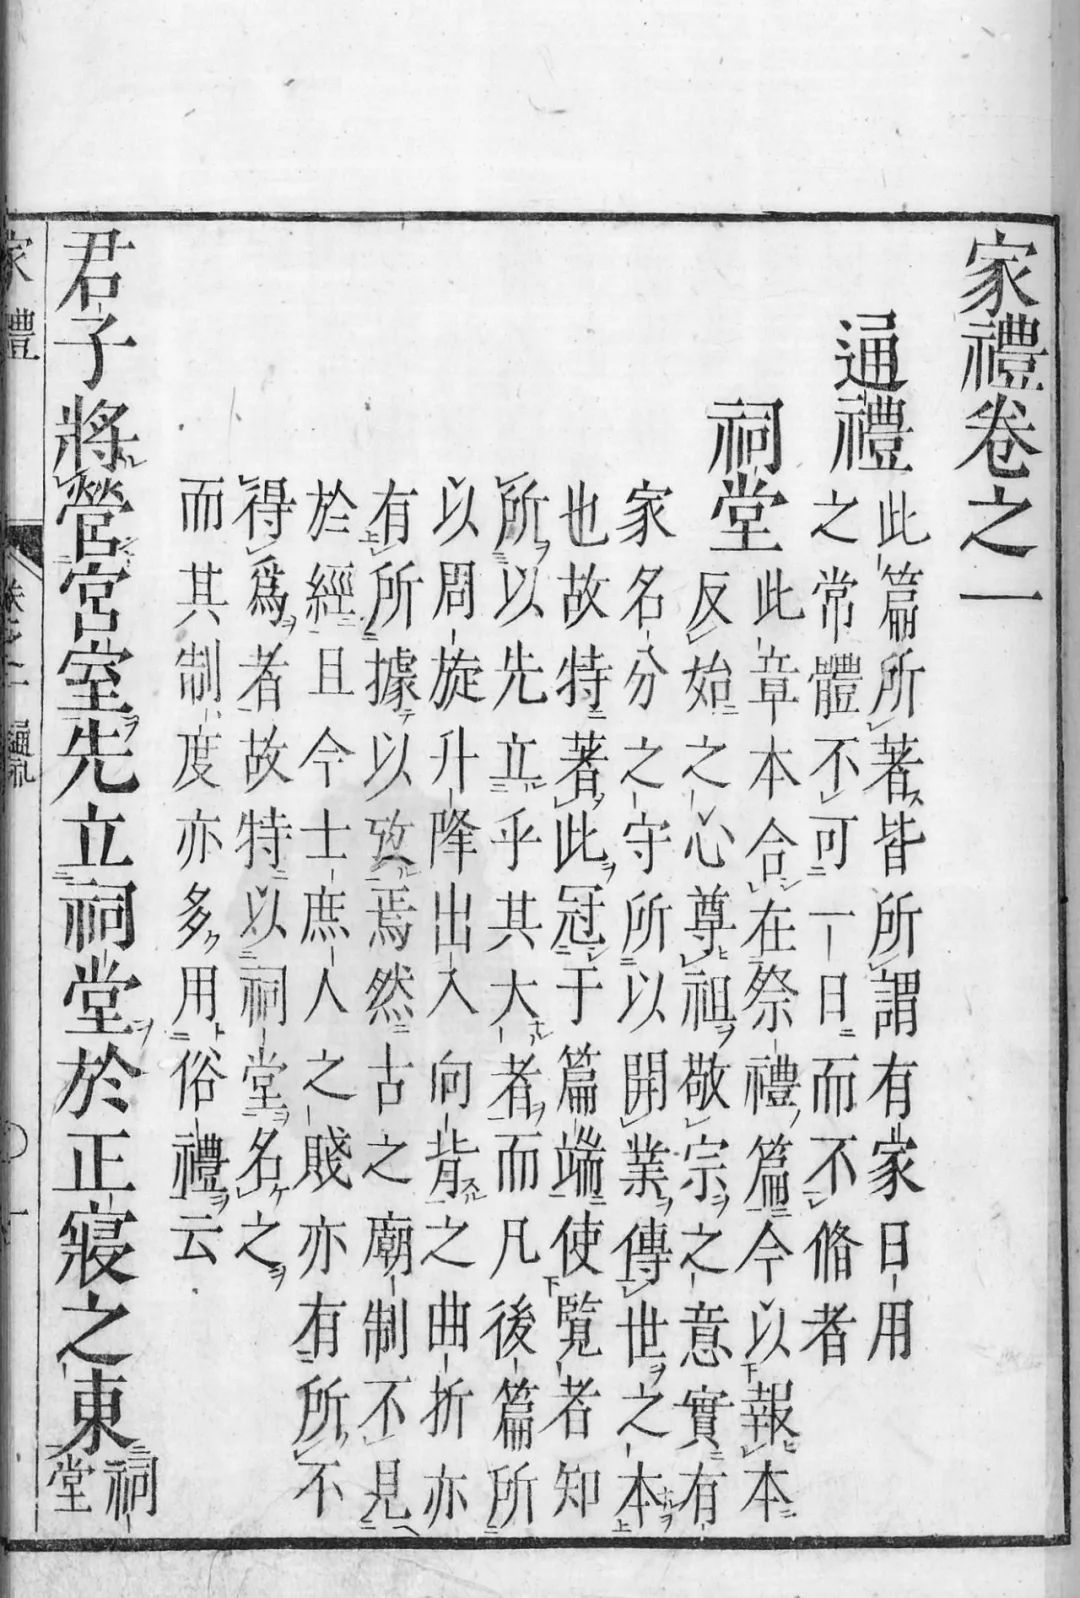 家禮卷之一
通禮
此篇所著皆所謂有家日用
之常體不可一日而不脩者
祠堂
此章本合在祭禮篇今以報本
反始之心尊祖敬宗之意實有
家名分之守所以開業傳世之本
也故特著此冠于篇端使覽者知
所以先立乎其大者而凡後篇所
以周旋升降出入向背之曲折亦
有所據以攷焉然古之廟制不見
於經且今士庶人之賤亦有所不
得爲者故特以祠堂名之
而其制度亦多用俗禮云
君子將營宮室先立祠堂於正寢之東
祠
堂
家禮
通礼